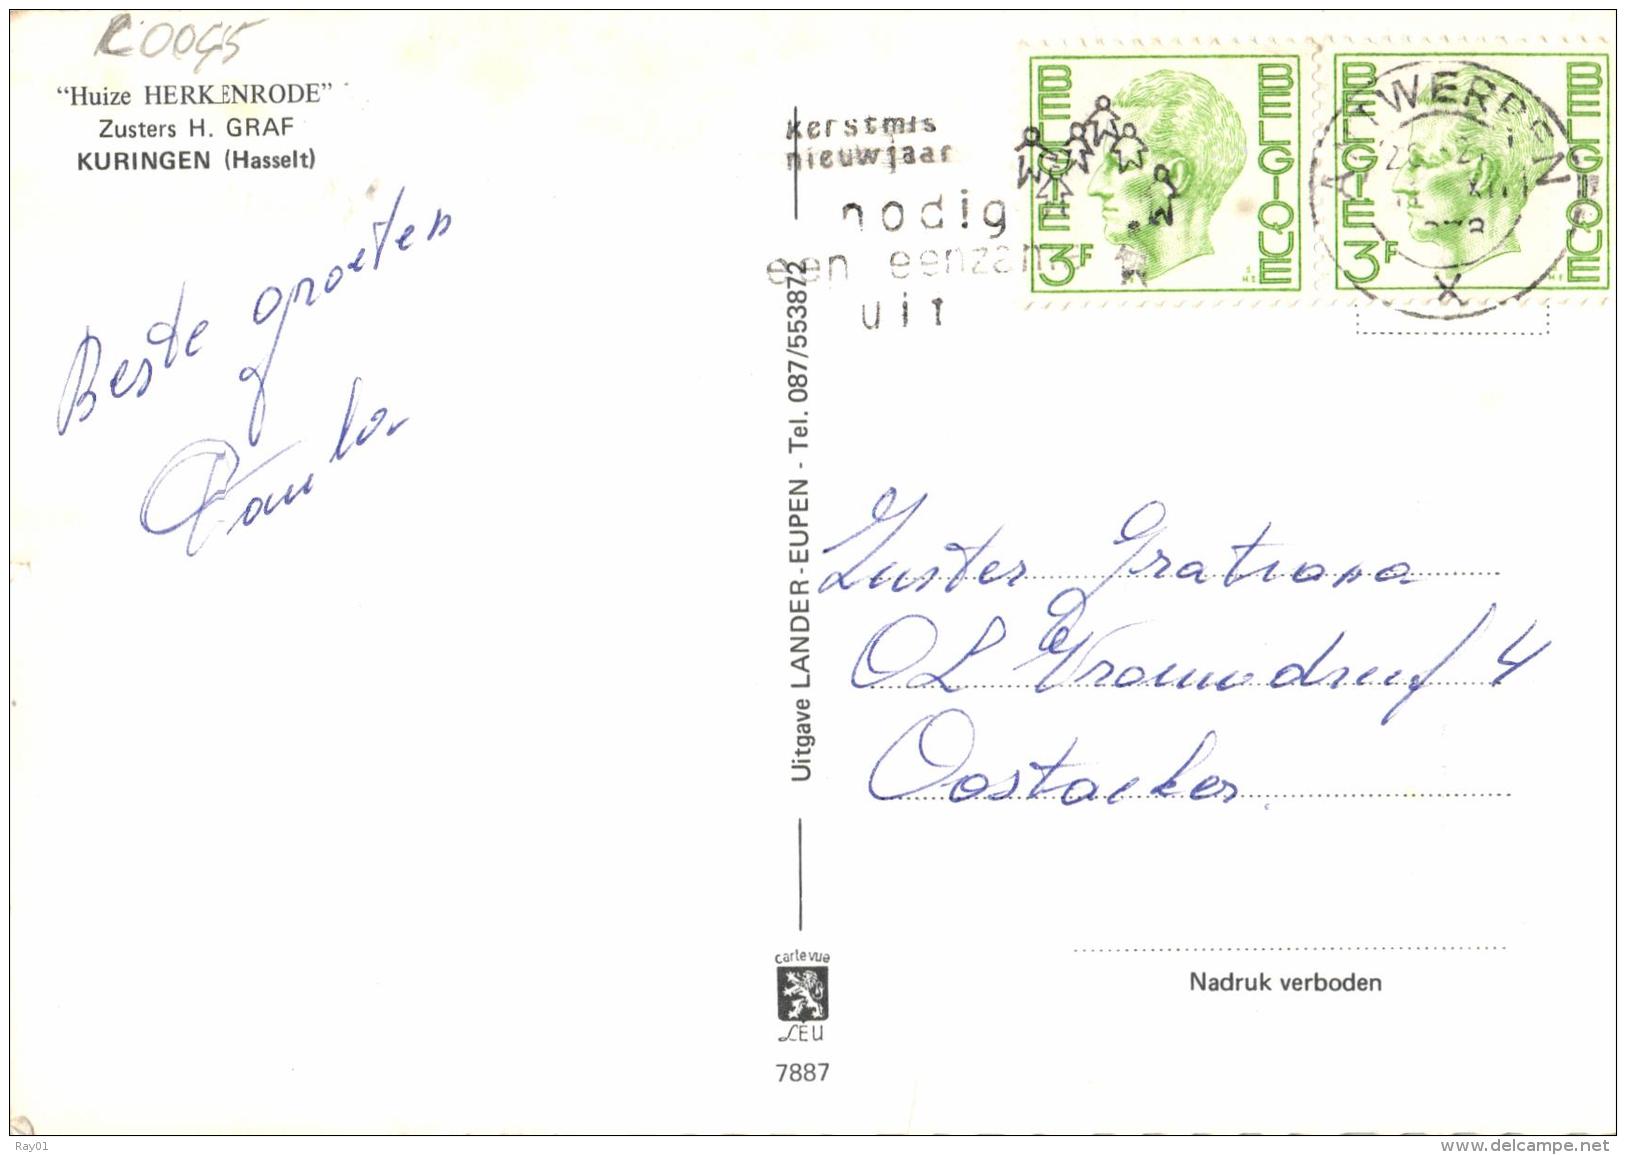 "Huize HERKENRODE"
Zusters H. GRAF
KURINGEN (Hasselt)
Beste groeten
kerstmis
nieuwjaar
nodig
een eenzam
uit
BELGIE BELGIQUE
3F
BELGIE BELGIQUE
3F
ANTWERPEN
X
Uitgave LANDER-EUPEN - Tel. 087/553872
Zuster Gratiana
OL Vrouwdreef 4
Oostacker
carte vue
LEU
7887
Nadruk verboden
Ray01
www.delcampe.net